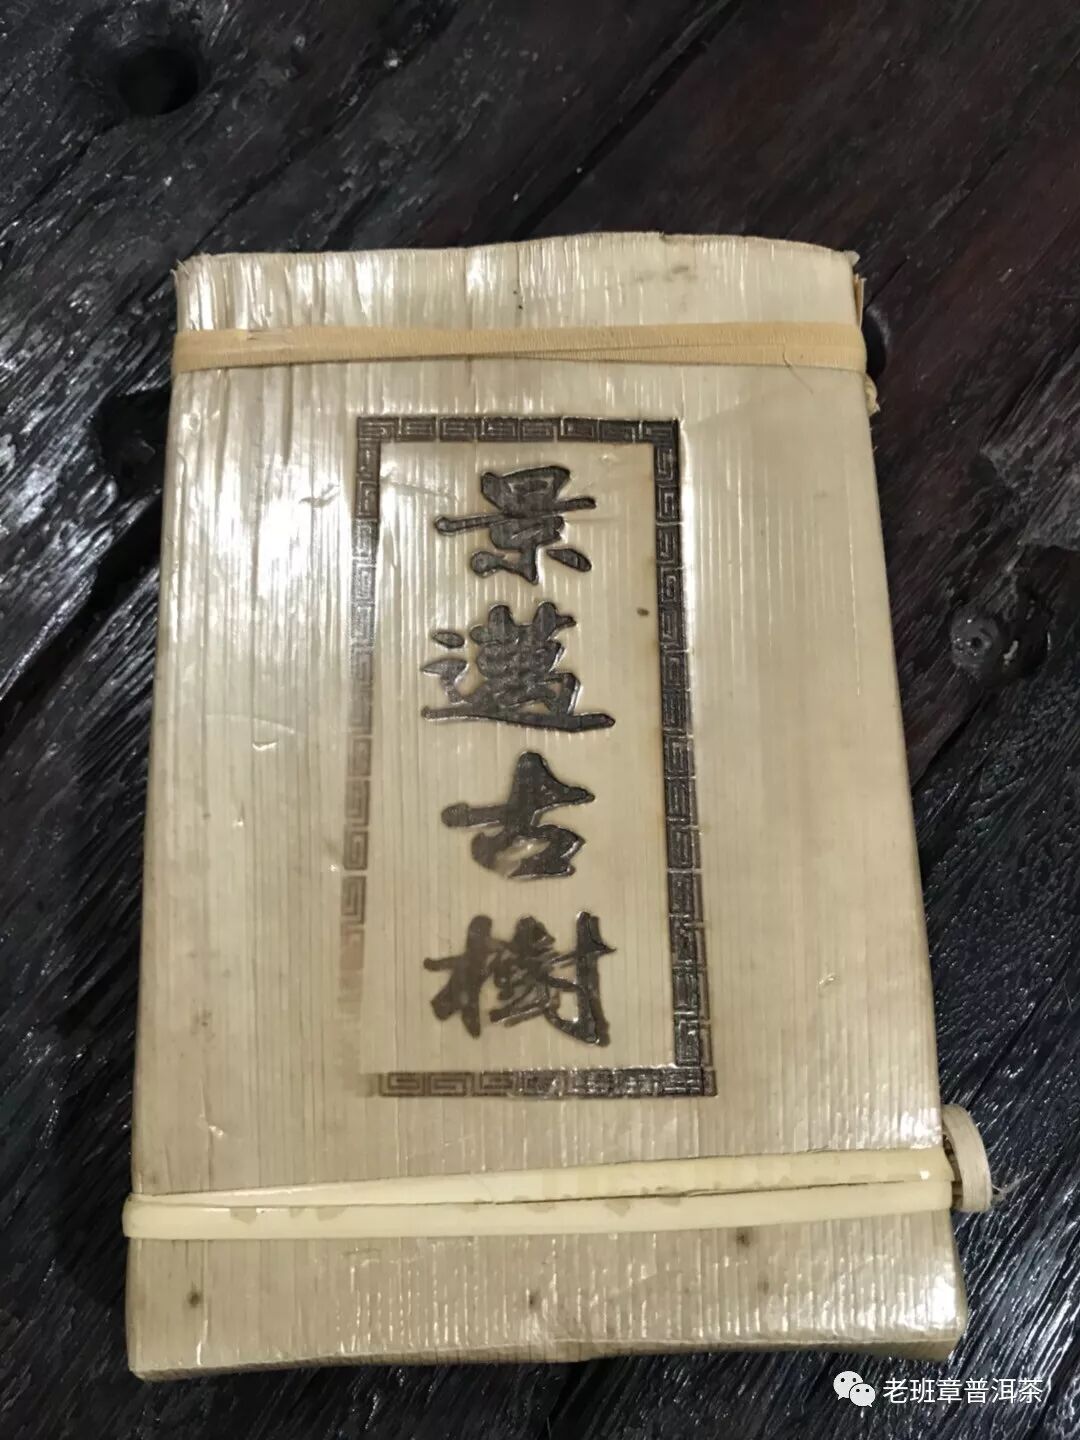 景邁古樹
老班章普洱茶